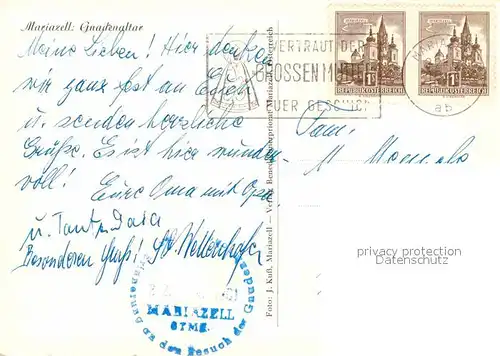 Mariazell: Gnadenaltar
Meine Lieben! Hier denken
wir ganz fest an Euch
u. senden herzliche
Grüße. Es ist hier wunder-
voll! Eure Oma mit Opa
u. Tante Dora
Besonderen Gruß!
VERTRAUT DER
GROSSEN MUTTER
EUER GESCHICK
REPUBLIK ÖSTERREICH
REPUBLIK ÖSTERREICH
Fam.
M.
Foto: J. Kuß, Mariazell – Verlag Benediktinerpriorat Mariazell, Österreich
privacy protection
Datenschutz
Erinnerung an den Besuch der Gnaden
MARIAZELL
STMK.